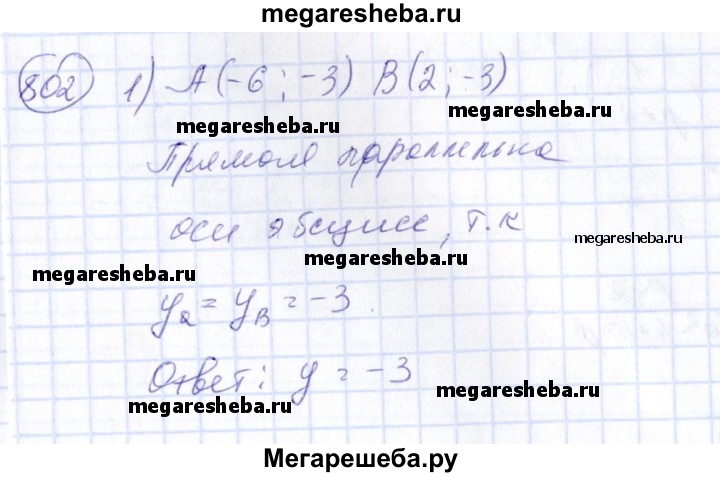 megaresheba.ru
802 1) A(-6 ; -3) B(2 ; -3)
megaresheba.ru
megaresheba.ru
Прямая параллельна
оси абсцисс, т.к
megaresheba.ru
megaresheba.ru
ya = yB = -3.
Ответ: y = -3
megaresheba.ru
megaresheba.ru
Мегарешеба.ру